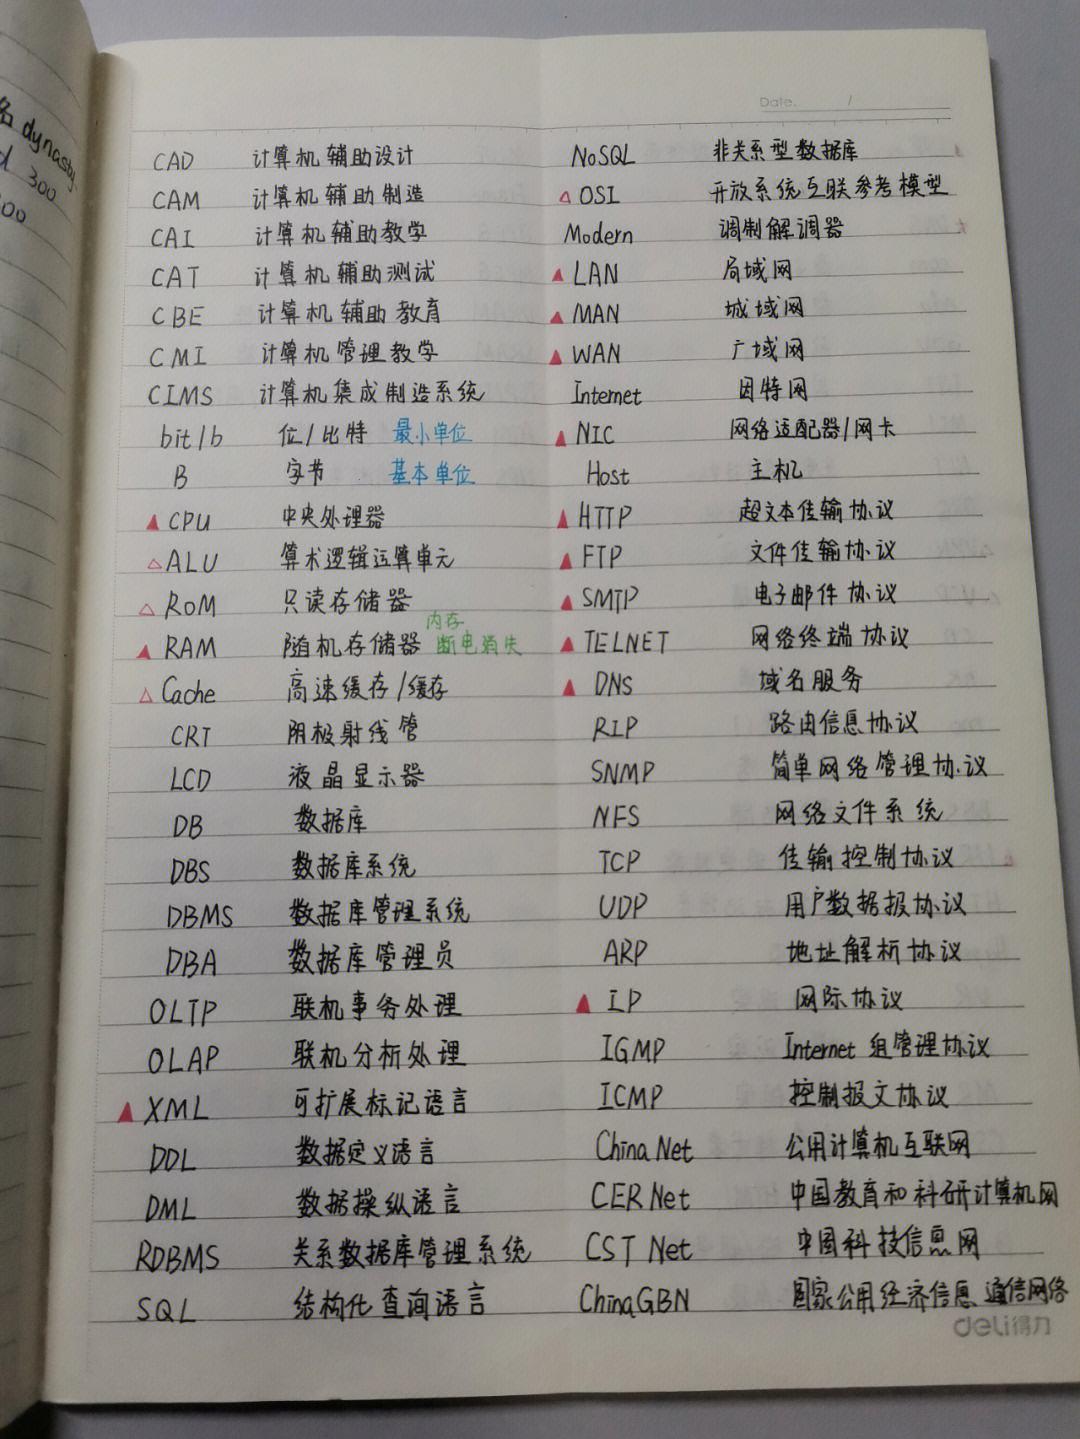 名 dynasty
d 300
00
Date. /
CAD 计算机辅助设计
CAM 计算机辅助制造
CAI 计算机辅助教学
CAT 计算机辅助测试
CBE 计算机辅助教育
CMI 计算机管理教学
CIMS 计算机集成制造系统
bit/b 位/比特 最小单位
B 字节 基本单位
▲ CPU 中央处理器
△ ALU 算术逻辑运算单元
△ ROM 只读存储器
▲ RAM 随机存储器 内存 断电消失
△ Cache 高速缓存/缓存
CRT 阴极射线管
LCD 液晶显示器
DB 数据库
DBS 数据库系统
DBMS 数据库管理系统
DBA 数据库管理员
OLTP 联机事务处理
OLAP 联机分析处理
▲ XML 可扩展标记语言
DDL 数据定义语言
DML 数据操纵语言
RDBMS 关系数据库管理系统
SQL 结构化查询语言
NoSQL 非关系型数据库
△ OSI 开放系统互联参考模型
Modern 调制解调器
▲ LAN 局域网
▲ MAN 城域网
▲ WAN 广域网
Internet 因特网
▲ NIC 网络适配器/网卡
Host 主机
▲ HTTP 超文本传输协议
▲ FTP 文件传输协议
▲ SMTP 电子邮件协议
▲ TELNET 网络终端协议
▲ DNS 域名服务
RIP 路由信息协议
SNMP 简单网络管理协议
NFS 网络文件系统
TCP 传输控制协议
UDP 用户数据报协议
ARP 地址解析协议
▲ IP 网际协议
IGMP Internet 组管理协议
ICMP 控制报文协议
ChinaNet 公用计算机互联网
CERNet 中国教育和科研计算机网
CSTNet 中国科技信息网
ChinaGBN 国家公用经济信息通信网络
deli得力